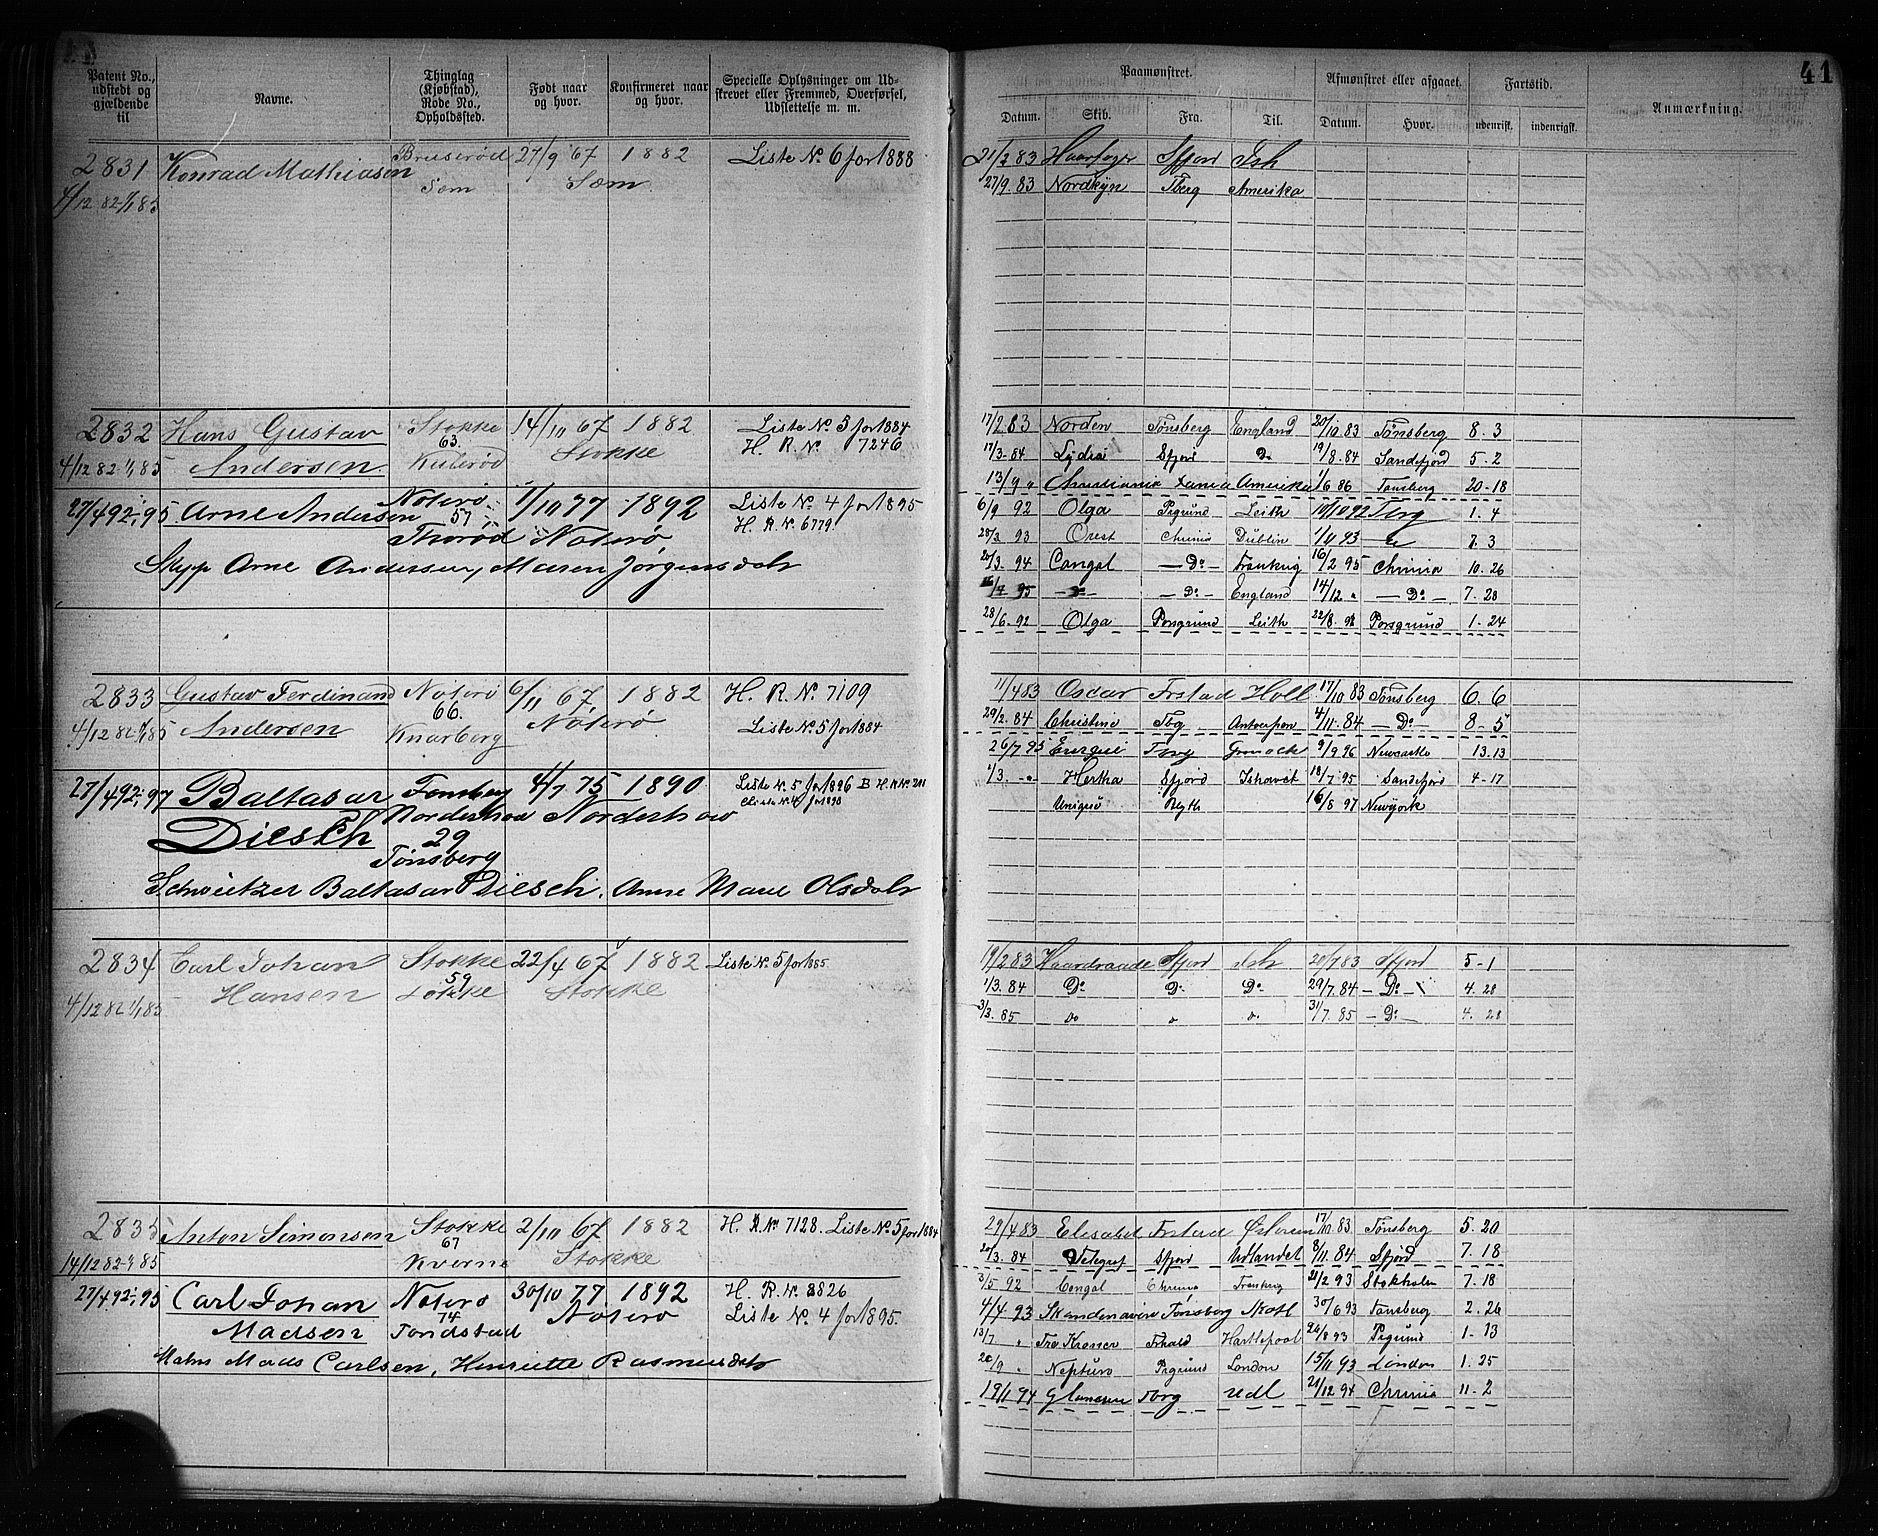 41
Patent No., udstedt og gjældende til
Navne.
Thinglag (Kjøbstad), Rode No., Opholdssted.
Født naar og hvor.
Konfirmeret naar og hvor.
Specielle Oplysninger om Udskrevet eller Fremmed, Overførsel, Udslettelse m. m.
Paamønstret.
Afmønstret eller afgaaet.
Fartstid.
Anmærkning.
Datum. Skib. Fra. Til. Datum. Hvor. udenrisk. indenrigsk.
2831 Konrad Mathiasen Bruserød 27/9 67 1882 Liste No. 6 for 1888
4/12 82-1/1 85 Sem Sem
21/2 83 Sfjord Ish
27/9. 83 Nordkyn Tberg Amerika
2832 Hans Gustav Stokke 14/11 67 1882 Liste No. 5 for 1884
63. H. R. No. 7246
4/12 82 1/1 85 Andersen Stokke
17/2 83 Norden Tönsberg England 20/10 83 Tönsberg 8. 3
17/3. 84 Sfjord Do 19/8. 84 Sandefjord 5. 2
13/9 " Amerika 1/6 86 Tonsberg 20-18
27/4 92-1/1 95 Arne Andersen Nøterø 1/10 77 1892 Liste No. 4 for 1895
57 H. R. No. 6779
Thorød Nøterø
Skypp Arne Andersen, Maren Jørgensdatr
6/9 92 Olga Pigrund Leith 10/10 92 Tbrg 1. 4
28/3 93 Orest Chrinia Dublin 1/11 93 7. 3
20/3. 94 Cangal — Do — Frankrig 16/2 95 Chrinia 10. 26
95 — Do — England 14/12 " — Do — 7. 28
28/6. 92 Olga Porsgrund Leith 22/8. 92 Porsgrund 1. 24
2833 Gustav Ferdinand Nøterø 6/11 67 1882 H. R. No. 7109
66.
4/12 82 1/1 85 Andersen Knarberg Nøterø Liste No. 5 for 1884
11/4 83 Oscar Frstad Holl 17/10 83 Tönsberg 6. 6
29/2. 84 Christine Tbg Antwerpen 4/11. 84 — Do — 8-5
26/7 95 Tbrg Grenock 9/9 96 Newcastle 13. 13
1/3. Hertha Sfjord Ishavet 18/7 95 Sandefjord 4-17
Blyth 16/8 97 Newyork
27/4 92-97 Baltasar Tønsberg 4/7 75 1890 Liste No. 5 for 1896
Diesch Norderhov Norderhov
29
Tønsberg
Schweitzer Baltasar Diesch. Anne Marie Olsdatr
2834 Carl Johan Stokke 22/4 67 1882 Liste No. 5 for 1885
59
4/12 82 1/1 85 Hansen Løkke Stokke
19/2 83 Haardraade Sfjord Ish 20/7 83 Sfjord 5-1
1/3. 84 Do Do Do 29/7. 84 — Do — 4. 28
3/3. 85 Do " " 31/7. 85 — Do — 4. 28
2835 Anton Simonsen Stokke 2/10 67 1882 H. R. No. 7128. Liste No. 5 for 1884
67
14/12 82-1/1 85 Kverne Stokke
29/4 83 Elisabet Frstad Østersøen 17/10 83. Tønsberg 5. 20
20/3. 84 Telegraf Sfjord Udlandet 8/11. 84 Sfjord 7. 18
27/4 92-1/1 95 Carl Johan Nøterø 30/10 77 1892 H. R. No. 8826
74 Liste No. 4 for 1895.
Madsen Tondstad Nøterø
Matrs Mads Carlsen, Henriette Rasmusdatr
3/5 92 Cangal Chrinia Frankrig 21/2 93 Stokholm 7. 18
4/4 93 Skandinavien Tønsberg Skotl 30/6 93 Tonsberg 2. 26
13/7 " Fra Kroner Frhald Hartlepool 26/8 93 Pigrund 1. 13
20/9 " Neptun Pigrund London 15/11 93 London 1. 25
19/1 94 Tbrg Udl 21/12 94 Chrinia 11-2